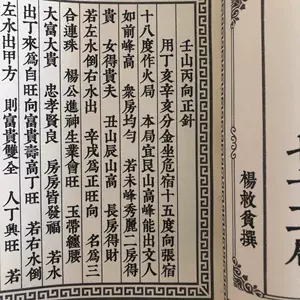 楊救貧撰
壬山丙向正針
用丁亥辛亥分金坐危宿十五度向張宿
十八度作火局 本局宜艮山高峰能出文人
如前峰高 衆房均勻 若未峰秀麗二房得
貴 女得貴夫 丑山辰山高 長房得財
若左水倒右水出 辛戌為正旺向 名為三
合連珠 楊公進神生業會旺 玉帶纏腰
大富大貴 忠孝賢良 房房皆發福 若水
出丁來為自旺向富貴壽高丁旺 若右水倒
左水出甲方 則富貴雙全 人丁興旺 若